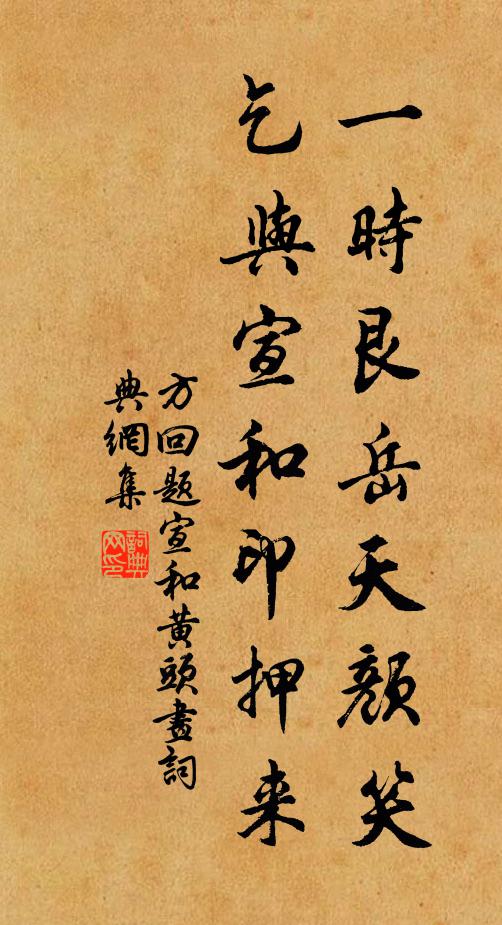 一時艮岳天顏笑
乞與宣和印押来
方回題宣和黄頭畫詞
典網集
詞典
网印